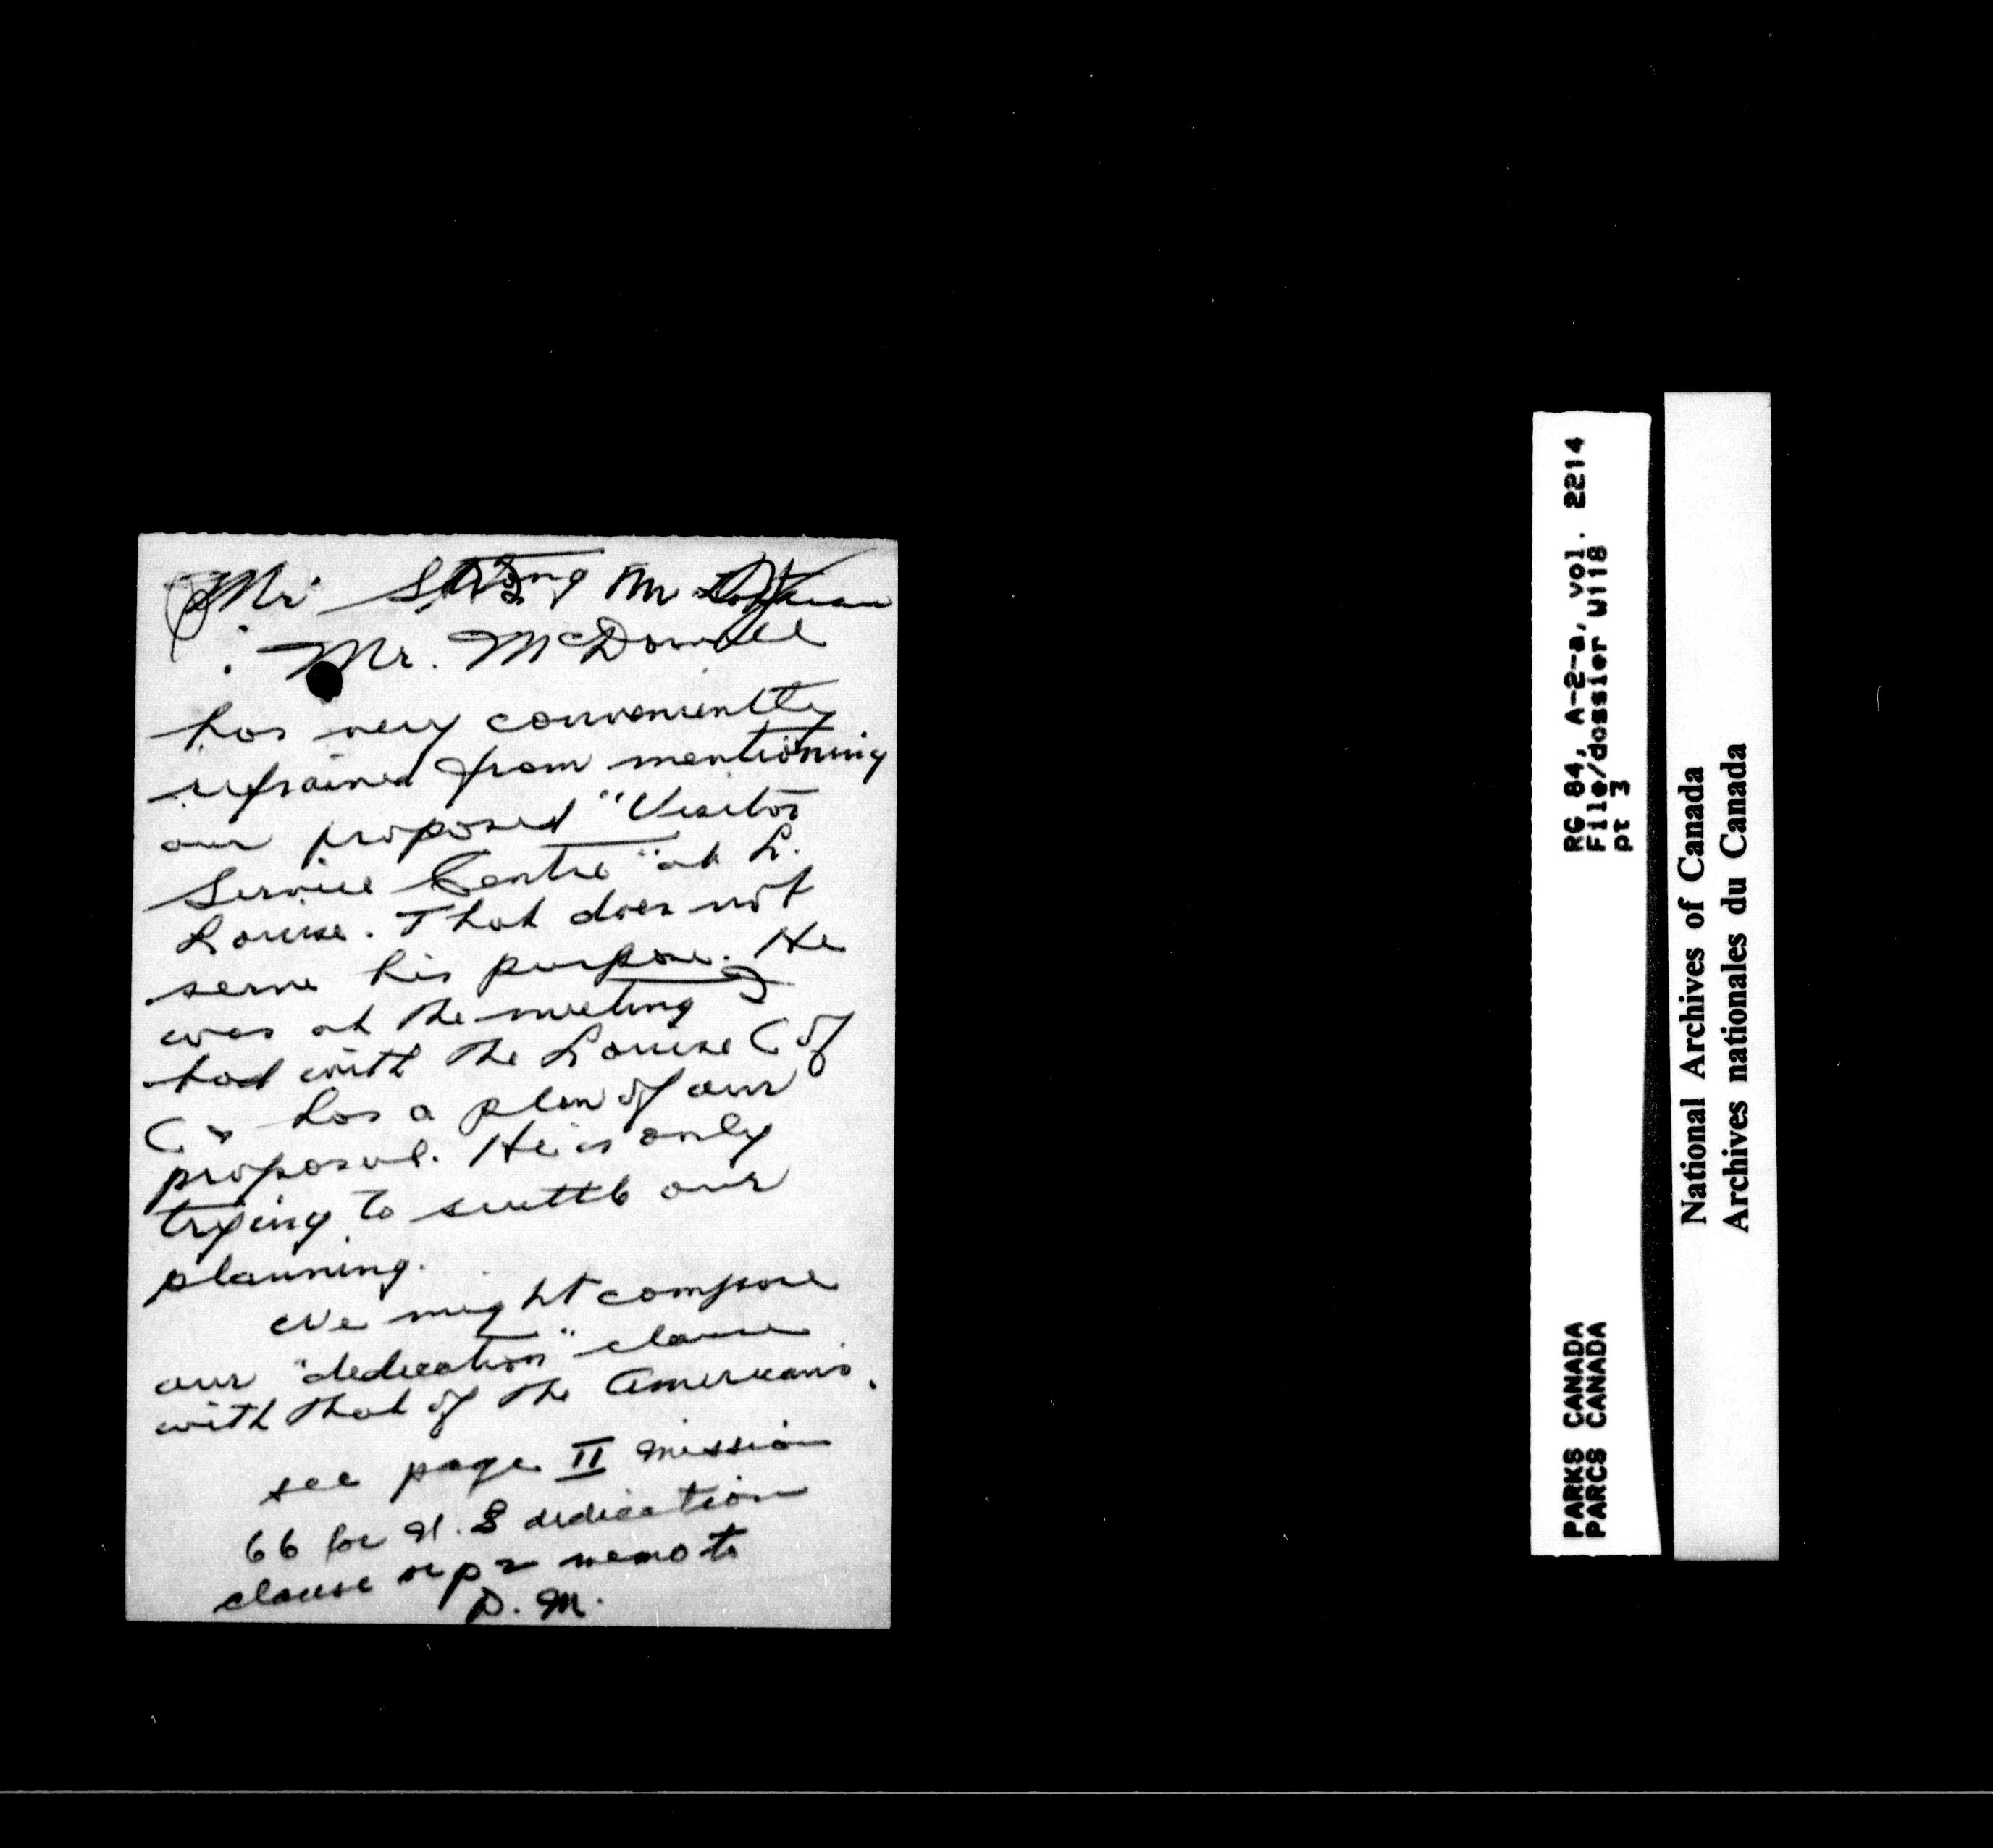 Mr Strong Mr
Mr. McDowell
has very conveniently
refrained from mentioning
our proposed "Visitor
Service Centre" at L.
Louise. That does not
serve his purpose. He
was at the meeting I
had with the Louise C of
C & has a plan of our
proposal. He is only
trying to scuttle our
planning.
We might compare
our "dedication" clause
with that of the Americans.
see page II mission
66 for U.S dedication
clause or p 2 memo to
D.M.
RG 84, A-2-a, vol. 2214
File/dossier W118
pt 3
PARKS CANADA
PARCS CANADA
National Archives of Canada
Archives nationales du Canada